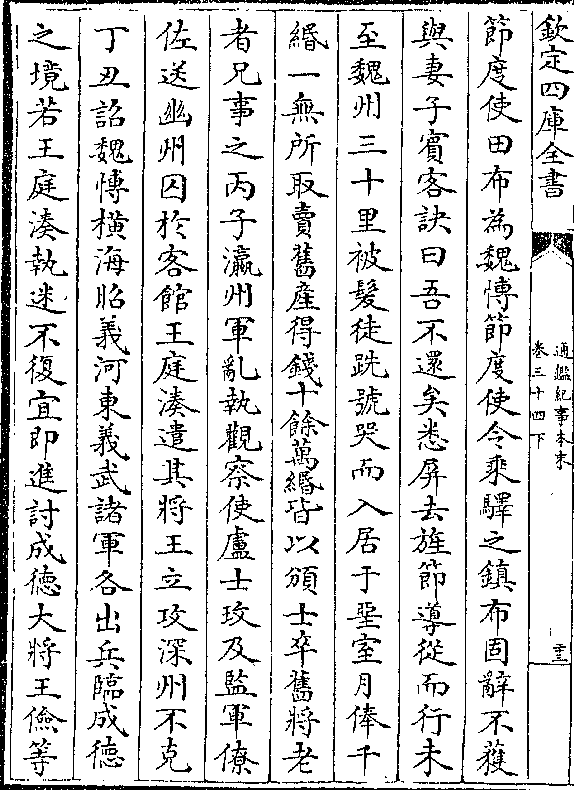 欽定四庫全書
通鑑紀事本末
卷三十四下
二十三
節度使田布為魏博節度使令乘驛之鎮布固辭不獲
與妻子賓客訣曰吾不還矣悉屏去旌節導從而行未
至魏州三十里被髮徒跣號哭而入居于堊室月俸千
緡一無所取賣舊產得錢十餘萬緡皆以頒士卒舊將老
者兄事之丙子瀛州軍亂執觀察使盧士玫及監軍僚
佐送幽州囚於客館王庭湊遣其將王立攻深州不克
丁丑詔魏博橫海昭義河東義武諸軍各出兵臨成德
之境若王庭湊執迷不復宜即進討成德大將王儉等